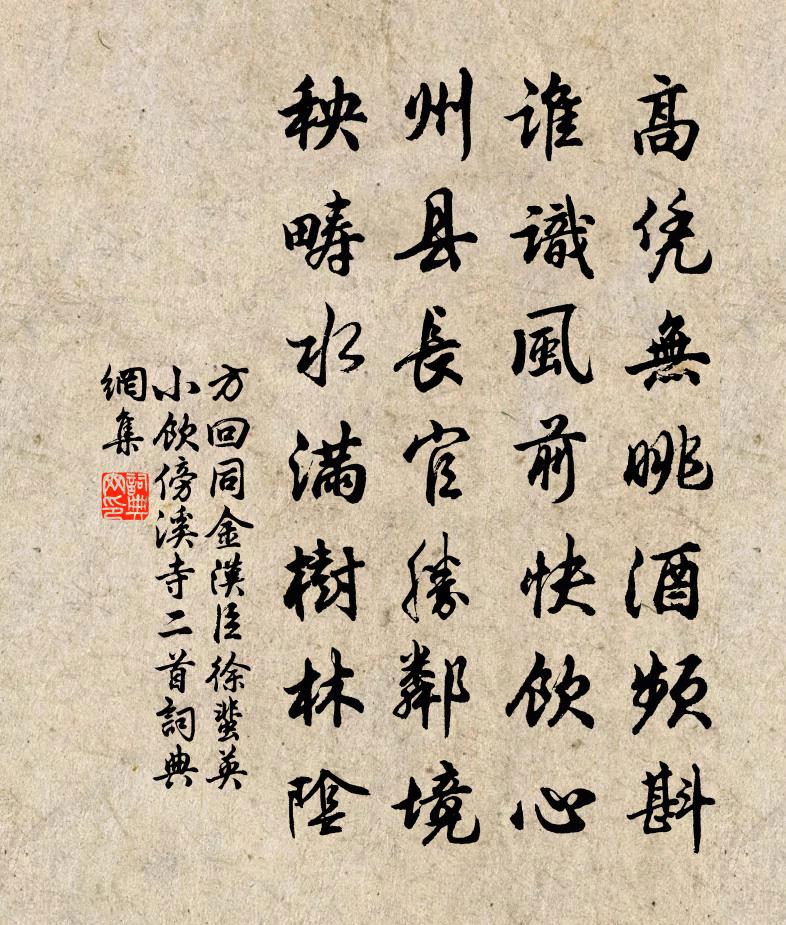 高凭無眺酒頻斟
誰識風前快飲心
州县長官勝鄰境
秧疇水滿樹林陰
方回同金漢臣徐蜚英
小飲傍溪寺二首詞典
網集
詞典網印